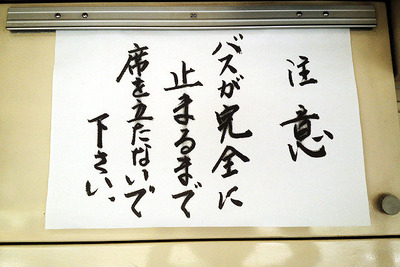 注意
バスが完全に
止まるまで
席を立たないで
下さい。
20